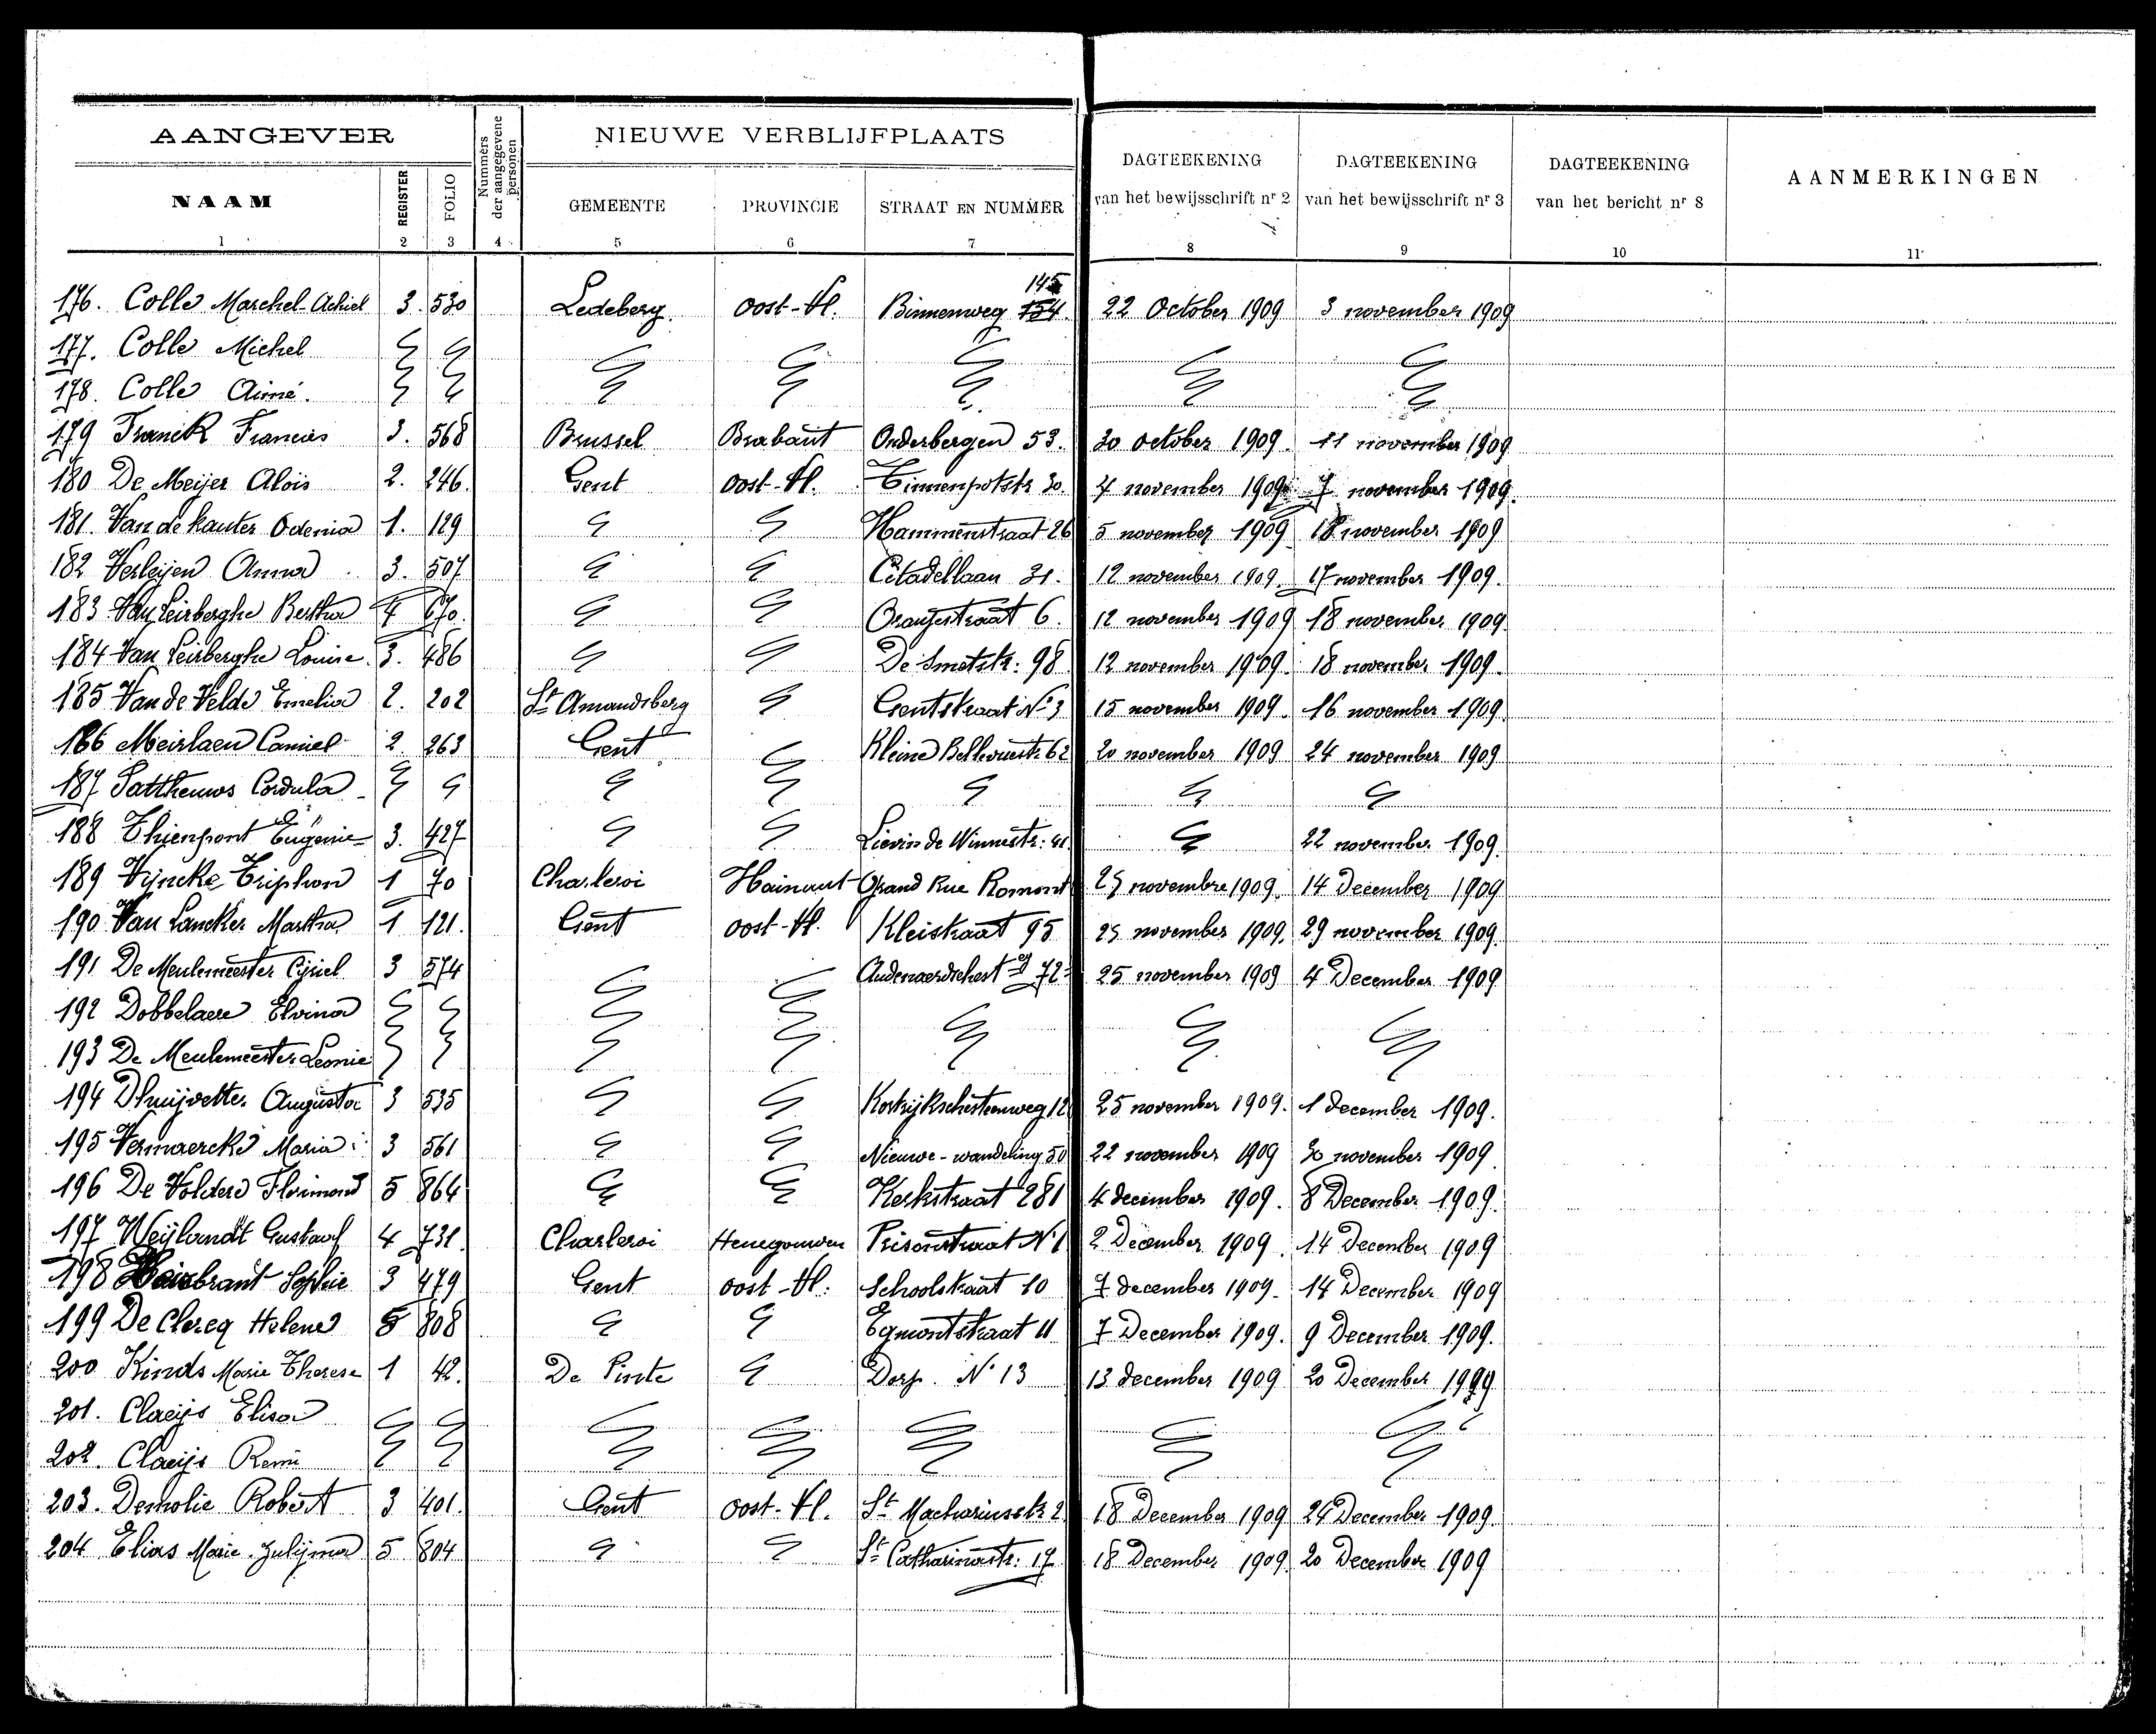 AANGEVER
NIEUWE VERBLIJFPLAATS
NAAM
REGISTER
FOLIO
Nummers der aangegevene personen
GEMEENTE
PROVINCIE
STRAAT EN NUMMER
DAGTEEKENING van het bewijsschrift nr 2
DAGTEEKENING van het bewijsschrift nr 3
DAGTEEKENING van het bericht nr 8
AANMERKINGEN
1 2 3 4 5 6 7 8 9 10 11
145
176. Colle Marchel-Achiel 3. 530 Ledeberg Oost-Vl. Binnenweg 154. 22 October 1909 3 november 1909
177. Colle Michel
178. Colle Aimé.
179 Franck Francies 3. 568 Brussel Brabant Onderbergen 53. 30 october 1909. 11 november 1909
180 De Meijer Aloïs 2. 246. Gent Oost-Vl. Tinnenpotstr 30. 4 november 1909 7 november 1909.
181. Van de Kauter Odenia 1. 129 Hammenstraat 26 5 november 1909 18 november 1909
182 Verleijen Anna 3. 507 Citadellaan 31. 12 november 1909. 17 november 1909.
183 Van Leirberghe Bertha 4 670. Oranjestraat 6. 12 november 1909 18 november 1909
184 Van Leirberghe Louise. 3. 486 De Smetstr: 98 12 november 1909. 18 november 1909.
185 Van de Velde Emelia 2. 202 St Amandsberg Gentstraat N° 3 15 november 1909. 16 november 1909.
186 Meirlaen Camiel 2 263 Gent Kleine Bellevuestr 62 20 november 1909 24 november 1909
187 Pattheuws Cordula
188 Thienpont Eugenie 3. 427 Lievin de Winnestr: 41 22 november 1909.
189 Vijncke Triphon 1 70 Charleroi Hainaut Grand Rue Romont 25 novembre 1909. 14 December 1909
190 Van Lancker Martha 1 121. Gent Oost-Vl. Kleistraat 95 25 november 1909. 29 november 1909.
191 De Meulemeester Cyriel 3 574 72 25 november 1909 4 December 1909
192 Dobbelaere Elvina
193 De Meulemeester Leonie
194 Dhuijvetter Augusta 3 535 Kortrijkschesteenweg 12 25 november 1909. 1 december 1909.
195 Vermaercke Maria 3 561 Nieuwe-wandeling 50 22 november 1909 30 november 1909.
196 De Voldere Florimond 5 864 Kerkstraat 281 4 december 1909. 8 December 1909.
197 Weijlandt Gustaaf 4 731. Charleroi Henegouwen Prisonstraat N° 1 2 December 1909. 14 December 1909
198 Sophie 3 479 Gent oost-Vl: Schoolstraat 10 7 december 1909. 14 December 1909
199 De Clercq Helene 5 808 Egmontstraat 11 7 December 1909. 9 December 1909.
200 Kinds Marie Therese 1 42. De Pinte Dorp. N° 13 13 december 1909 20 December 1909
201. Claeijs Elisa
202. Claeijs Remi
203. Demolie Robert 3 401. Gent Oost-Vl. St Machariusstr 2 18 December 1909 24 December 1909.
204 Elias Marie-Julijma 5 804 St Catharinastr: 17 18 December 1909. 20 December 1909